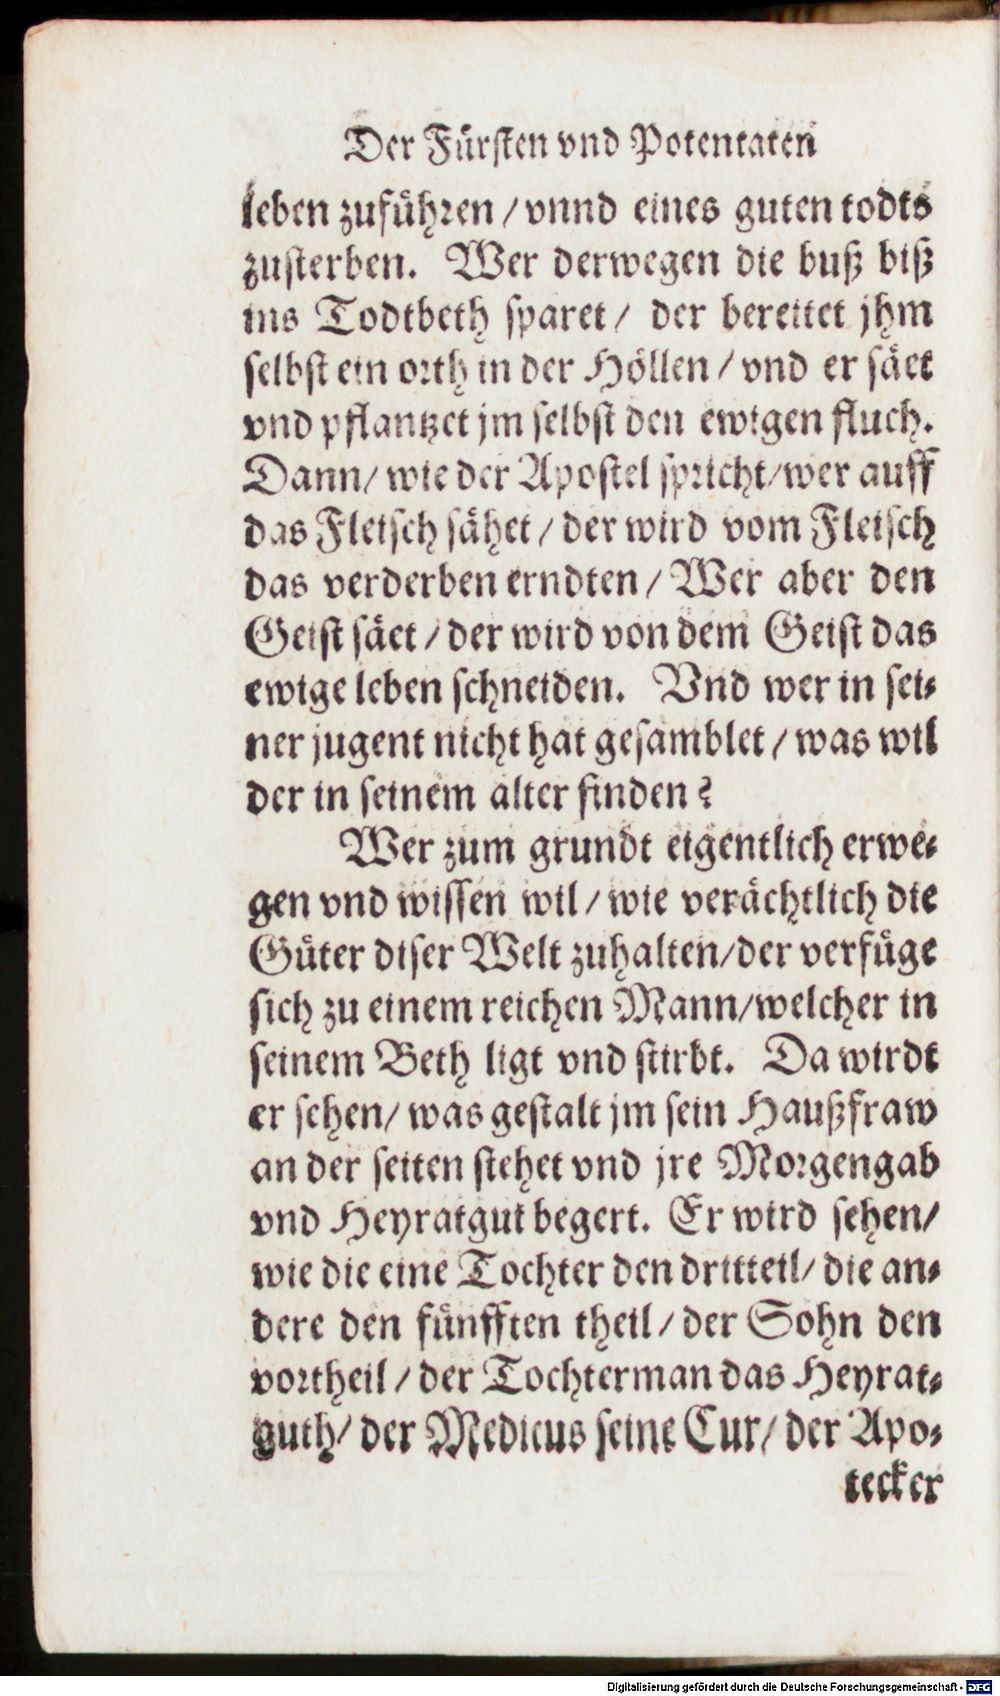 Der Fürsten vnd Potentaten
leben zuführen / vnnd eines guten todts
zusterben. Wer derwegen die buß biß
ins Todtbeth sparet / der bereitet jhm
selbst ein orth in der Höllen / vnd er säet
vnd pflantzet jm selbst den ewigen fluch.
Dann / wie der Apostel spricht / wer auff
das Fleisch sähet / der wird vom Fleisch
das verderben erndten / Wer aber den
Geist säet / der wird von dem Geist das
ewige leben schneiden. Vnd wer in sei⸗
ner jugent nicht hat gesamblet / was wil
der in seinem alter finden?
Wer zum grundt eigentlich erwe⸗
gen vnd wissen wil / wie verächtlich die
Güter diser Welt zuhalten / der verfüge
sich zu einem reichen Mann / welcher in
seinem Beth ligt vnd stirbt. Da wirdt
er sehen / was gestalt jm sein Haußfraw
an der seiten stehet vnd jre Morgengab
vnd Heyratgut begert. Er wird sehen /
wie die eine Tochter den dritteil / die an⸗
dere den fünfften theil / der Sohn den
vortheil / der Tochterman das Heyrat⸗
guth / der Medicus seine Cur / der Apo⸗
tecker
Digitalisierung gefördert durch die Deutsche Forschungsgemeinschaft - DFG